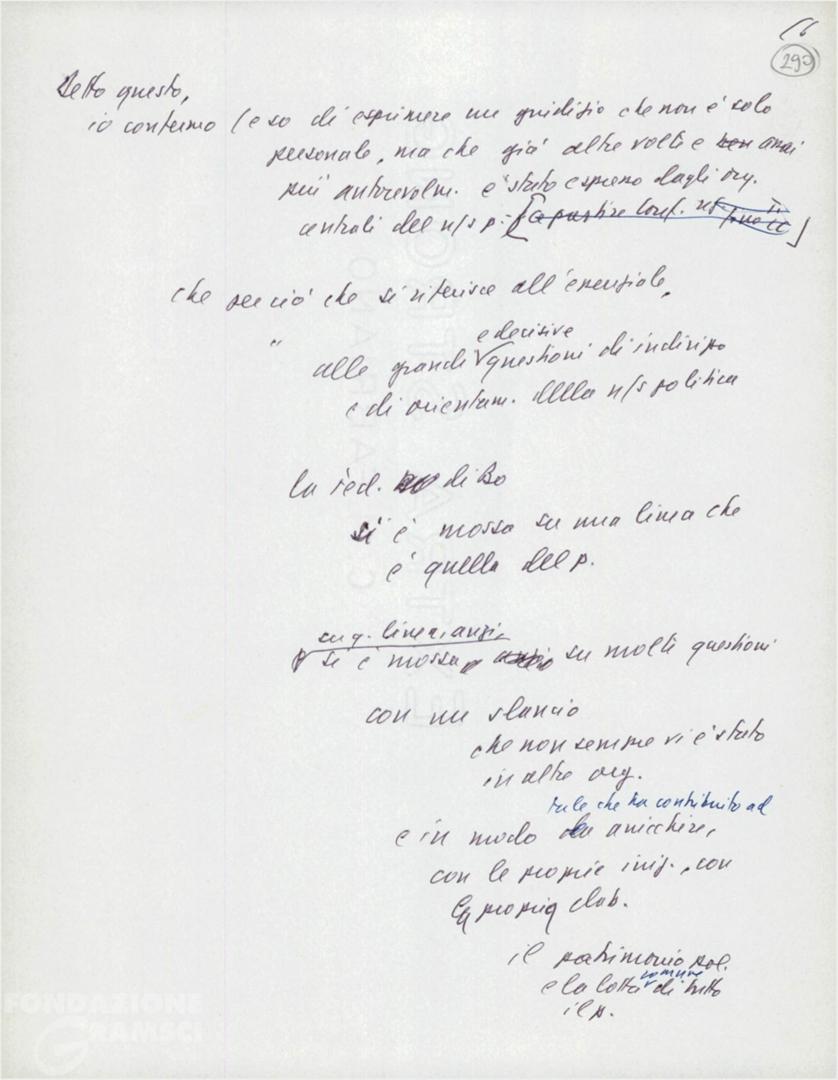 16
290
Detto questo,
io confermo (e so di esprimere un giudizio che non è solo
personale, ma che già altre volte e ben anzi
più autorevolm. è stato espresso dagli org.
centrali del n/s p. [a partire Conf.
che per ciò che si riferisce all'essenziale,
" alle grandi e decisive questioni di indirizzo
e di orientam. della n/s politica
la fed. di Bo
si è mossa su una linea che
è quella del p.
su q. linea, anzi,
si è mossa, anzi su molte questioni
con uno slancio
che non sempre vi è stato
in altre org.
tale che ha contribuito ad
e in modo da arricchire,
con le proprie iniz., con
la propria elab.
il patrimonio pol.
e la lotta comune di tutto
il p.
FONDAZIONE
GRAMSCI